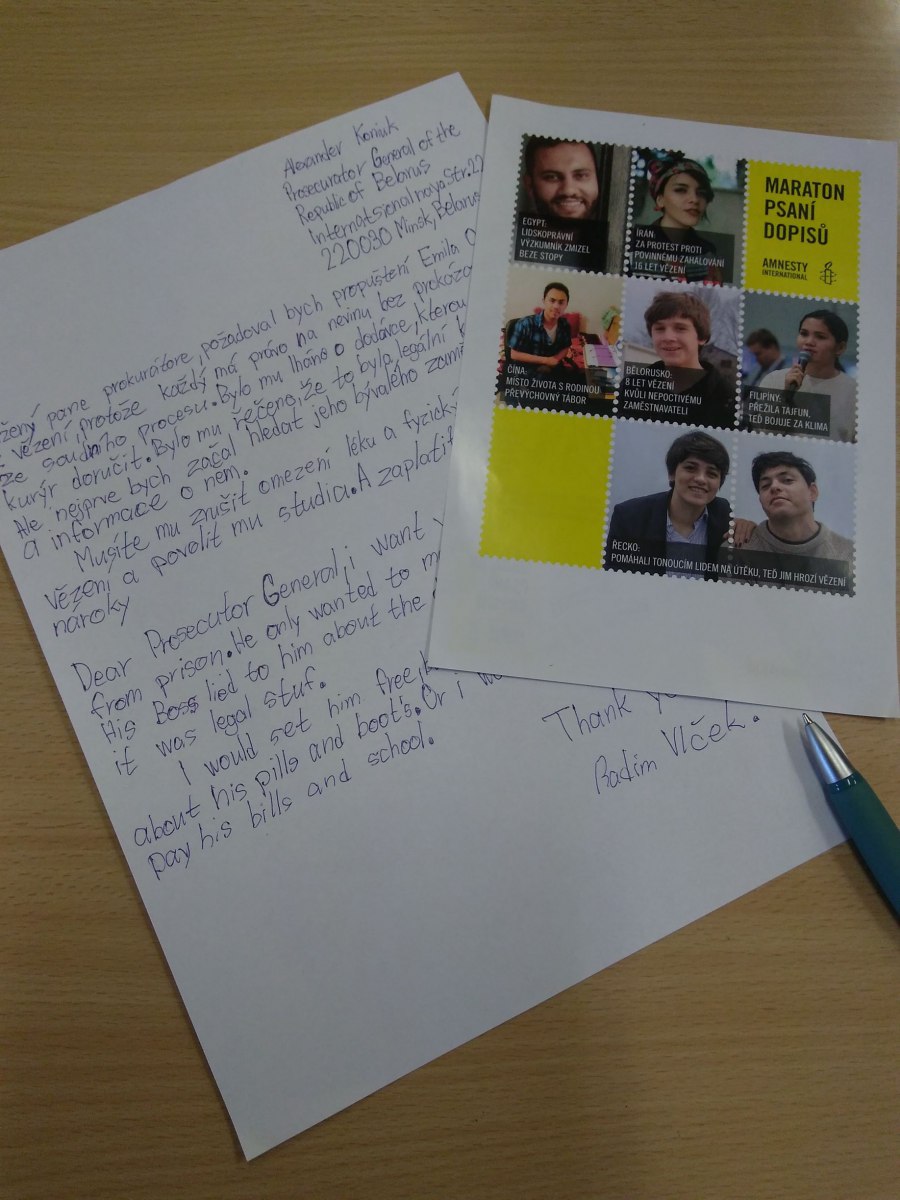 Alexander Koniuk
Prosecurator General of the
Republic of Belarus
Internatsionalnaya Str. 22
220030 Minsk, Belarus
pane prokurátore, požadoval bych propuštění Emila O
vězení, protože každý má právo na nevinu bez prokáza
soudního procesu. Bylo mu lháno o dodávce, kterou
kurýr doručit. Bylo mu řečeno, že to byla legální
Ale nejprve bych začal hledat jeho bývalého zamě
a informace o něm.
Musíte mu zrušit omezení léku a fyzický
vězení a povolit mu studia. A zaplatit
naroky
Dear Prosecutor General, i want
from prison. He only wanted to m
His Boss lied to him about the
it was legal stuf.
I would set him free,
about his pills and boots. Or i w
pay his bills and school.
Thank y
Radim Vlček.
EGYPT:
LIDSKOPRÁVNÍ
VÝZKUMNÍK ZMIZEL
BEZE STOPY
ÍRÁN:
ZA PROTEST PROTI
POVINNÉMU ZAHALOVÁNÍ
16 LET VĚZENÍ
MARATON
PSANÍ
DOPISŮ
AMNESTY
INTERNATIONAL
ČÍNA:
MÍSTO ŽIVOTA S RODINOU
PŘEVÝCHOVNÝ TÁBOR
BĚLORUSKO:
8 LET VĚZENÍ
KVŮLI NEPOCTIVÉMU
ZAMĚSTNAVATELI
FILIPÍNY:
PŘEŽILA TAJFUN,
TEĎ BOJUJE ZA KLIMA
ŘECKO:
POMÁHALI TONOUCÍM LIDEM NA ÚTĚKU, TEĎ JIM HROZÍ VĚZENÍ